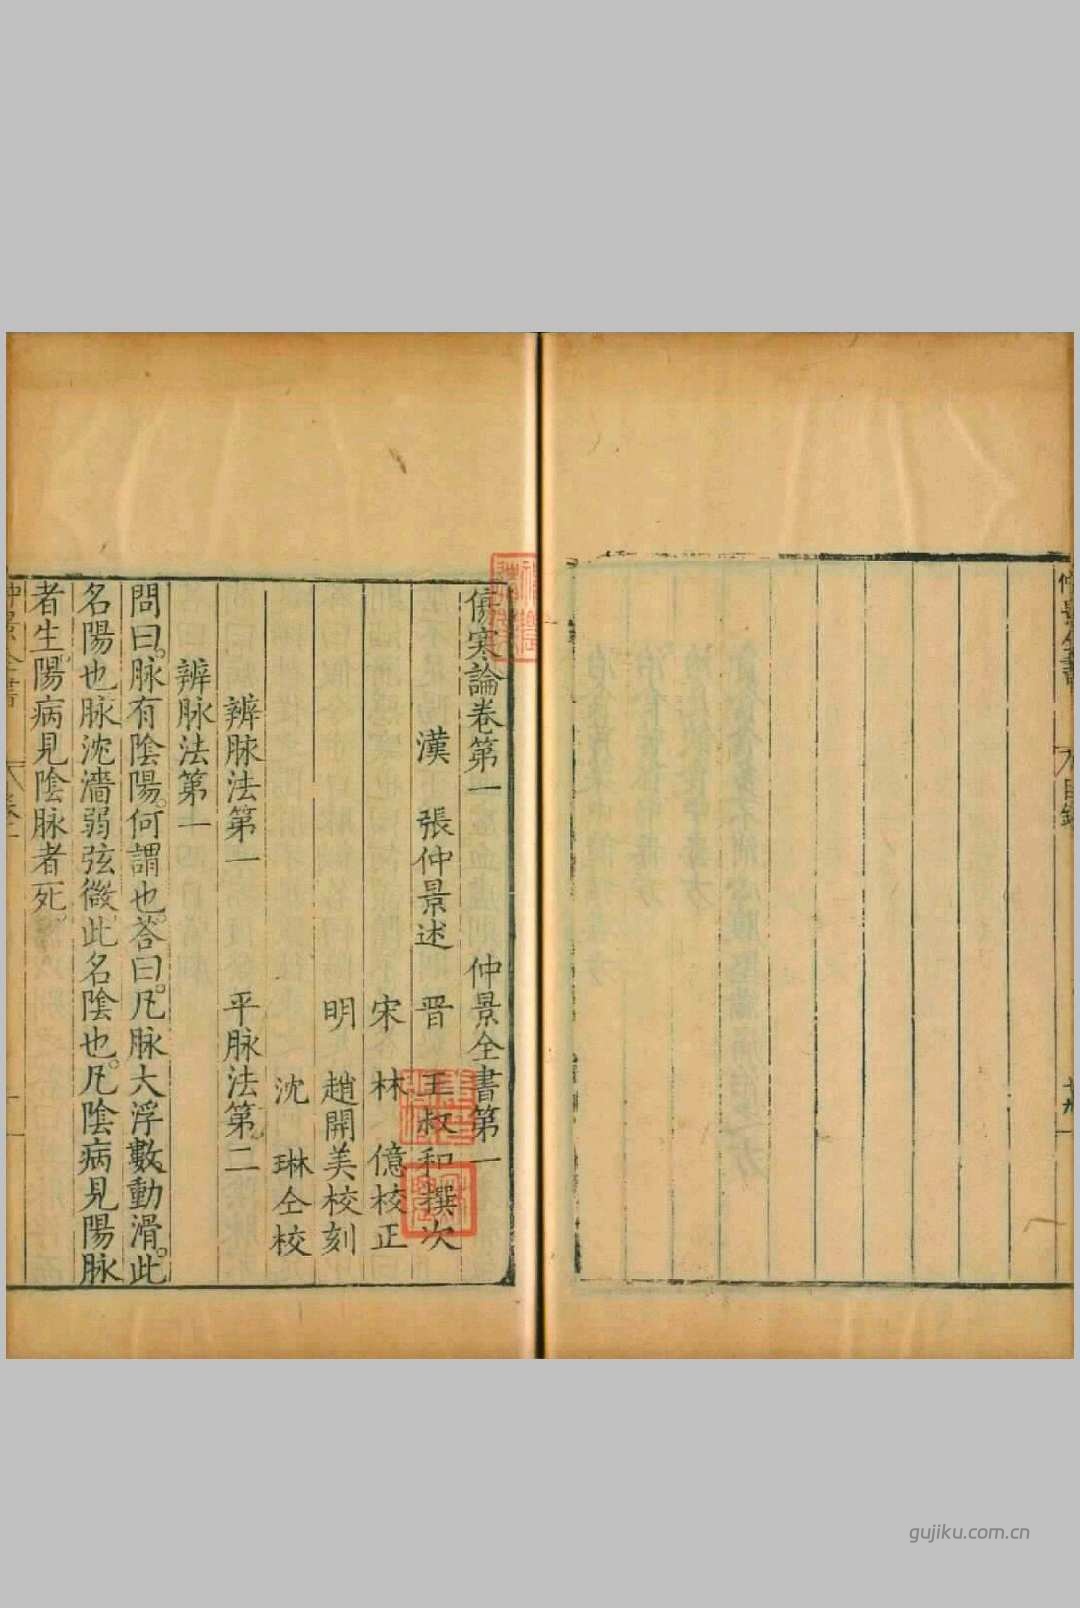 傷寒論卷第一 仲景全書第一
漢 張仲景述 晋 王叔和撰次
宋 林 億校正
明 趙開美校刻
沈 琳仝校
辨脉法第一 平脉法第二
辨脉法第一
問曰。脉有陰陽。何謂也。荅曰。凡脉大浮數動滑。此
名陽也脉沈濇弱弦微此名陰也。凡陰病見陽脉
者生。陽病見陰脉者死。
gujiku.com.cn